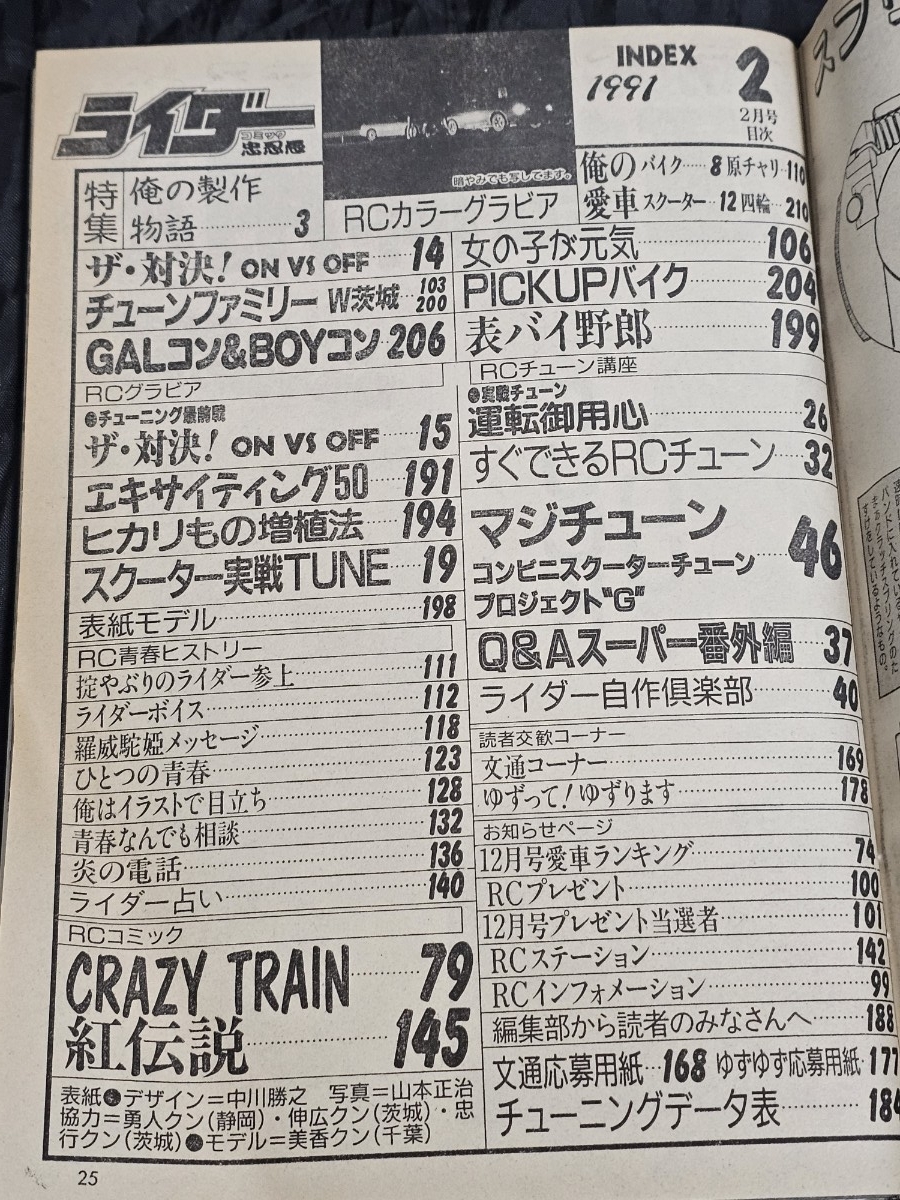 ライダー
コミック
忠忍愚
暗やみでも写してます。
INDEX
1991
2
2月号
目次
特集 俺の製作
物語 3
RCカラーグラビア
俺の愛車
バイク 8 原チャリ 110
スクーター 12 四輪 210
ザ・対決! ON VS OFF 14
チューンファミリー W茨城 103
200
GALコン&BOYコン 206
女の子が元気 106
PICKUPバイク 204
表バイ野郎 199
RCグラビア
●チューニング最前戦
ザ・対決! ON VS OFF 15
エキサイティング50 191
ヒカリもの増植法 194
スクーター実戦TUNE 19
表紙モデル 198
RC青春ヒストリー
掟やぶりのライダー参上 111
ライダーボイス 112
羅威駝婭メッセージ 118
ひとつの青春 123
俺はイラストで目立ち 128
青春なんでも相談 132
炎の電話 136
ライダー占い 140
RCコミック
CRAZY TRAIN 79
紅伝説 145
表紙●デザイン=中川勝之 写真=山本正治
協力=勇人クン(静岡)・伸広クン(茨城)・忠
行クン(茨城)●モデル=美香クン(千葉)
RCチューン講座
●実戦チューン
運転御用心 26
すぐできるRCチューン 32
マジチューン 46
コンビニスクーターチューン
プロジェクト"G"
Q&Aスーパー番外編 37
ライダー自作倶楽部 40
読者交歓コーナー
文通コーナー 169
ゆずって!ゆずります 178
お知らせページ
12月号愛車ランキング 74
RCプレゼント 100
12月号プレゼント当選者 101
RCステーション 142
RCインフォメーション 99
編集部から読者のみなさんへ 188
文通応募用紙 168 ゆずゆず応募用紙 177
チューニングデータ表 184
25